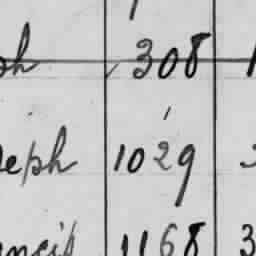 ph 308
seph 1029
ncis 1168 3